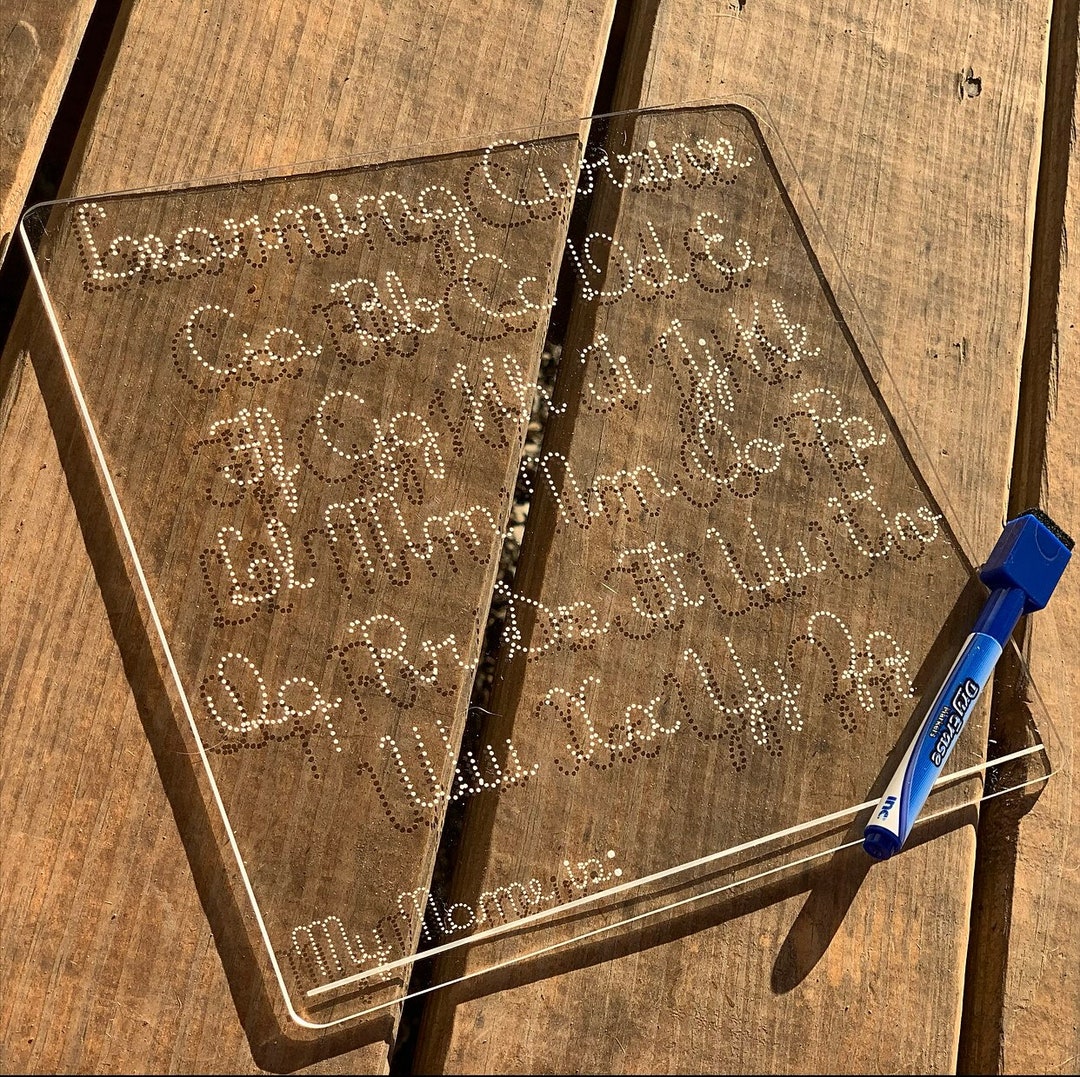 Learning Cursive
Aa Bb Cc Dd Ee
Ff Gg Hh Ii Jj Kk
Ll Mm Nn Oo Pp
Qq Rr Ss Tt Uu Vv
Ww Xx Yy Zz
My Name is:
Dry Erase
Markers
inc